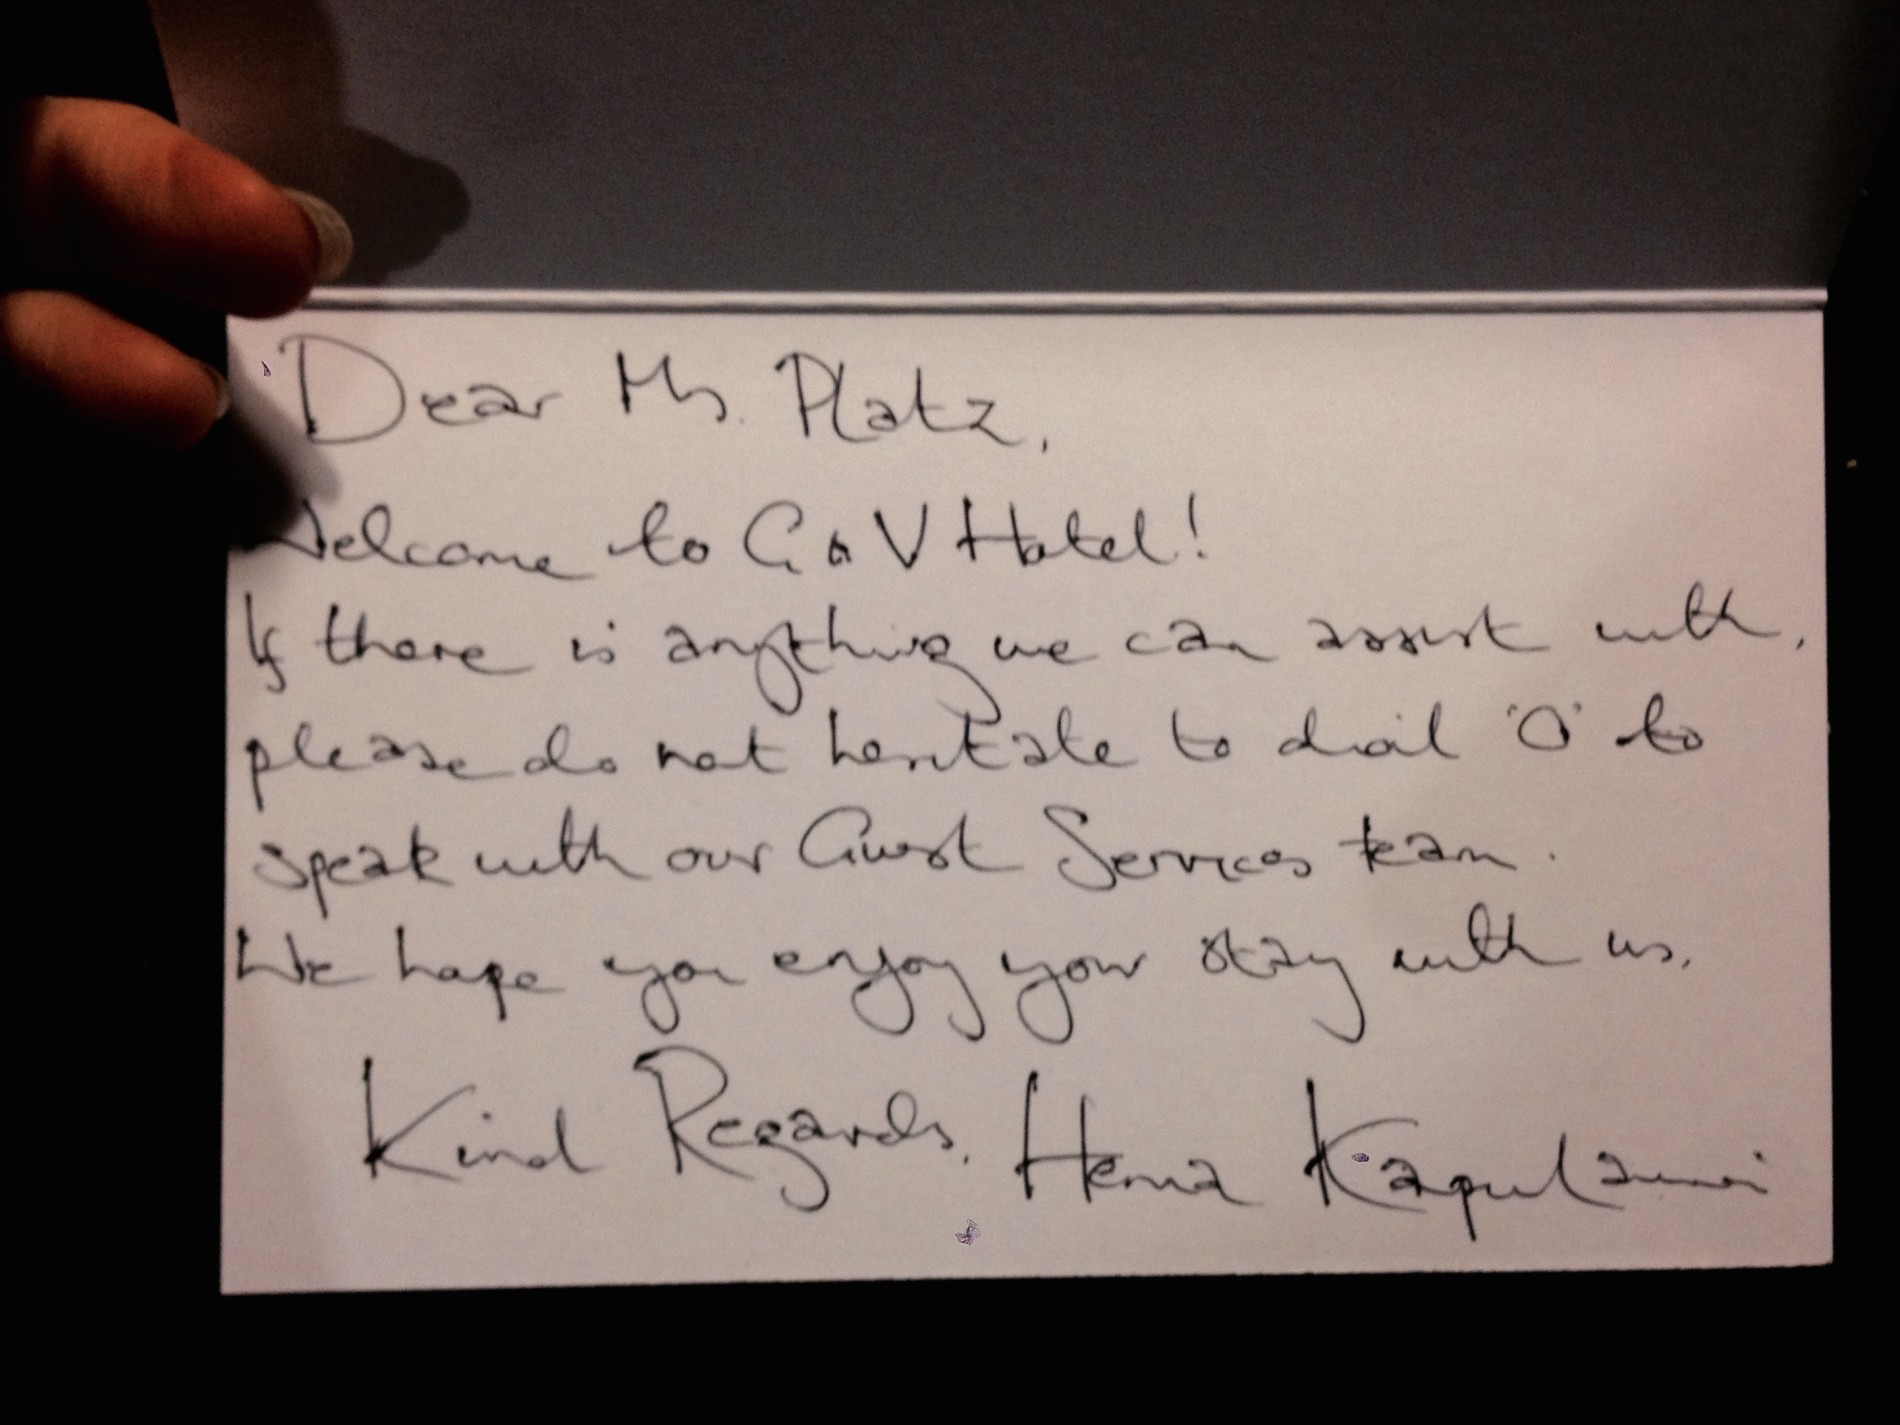 Dear Ms. Platz,
Welcome to G & V Hotel!
If there is anything we can assist with,
please do not hesitate to dial '0' to
speak with our Guest Services team.
We hope you enjoy your stay with us.
Kind Regards,